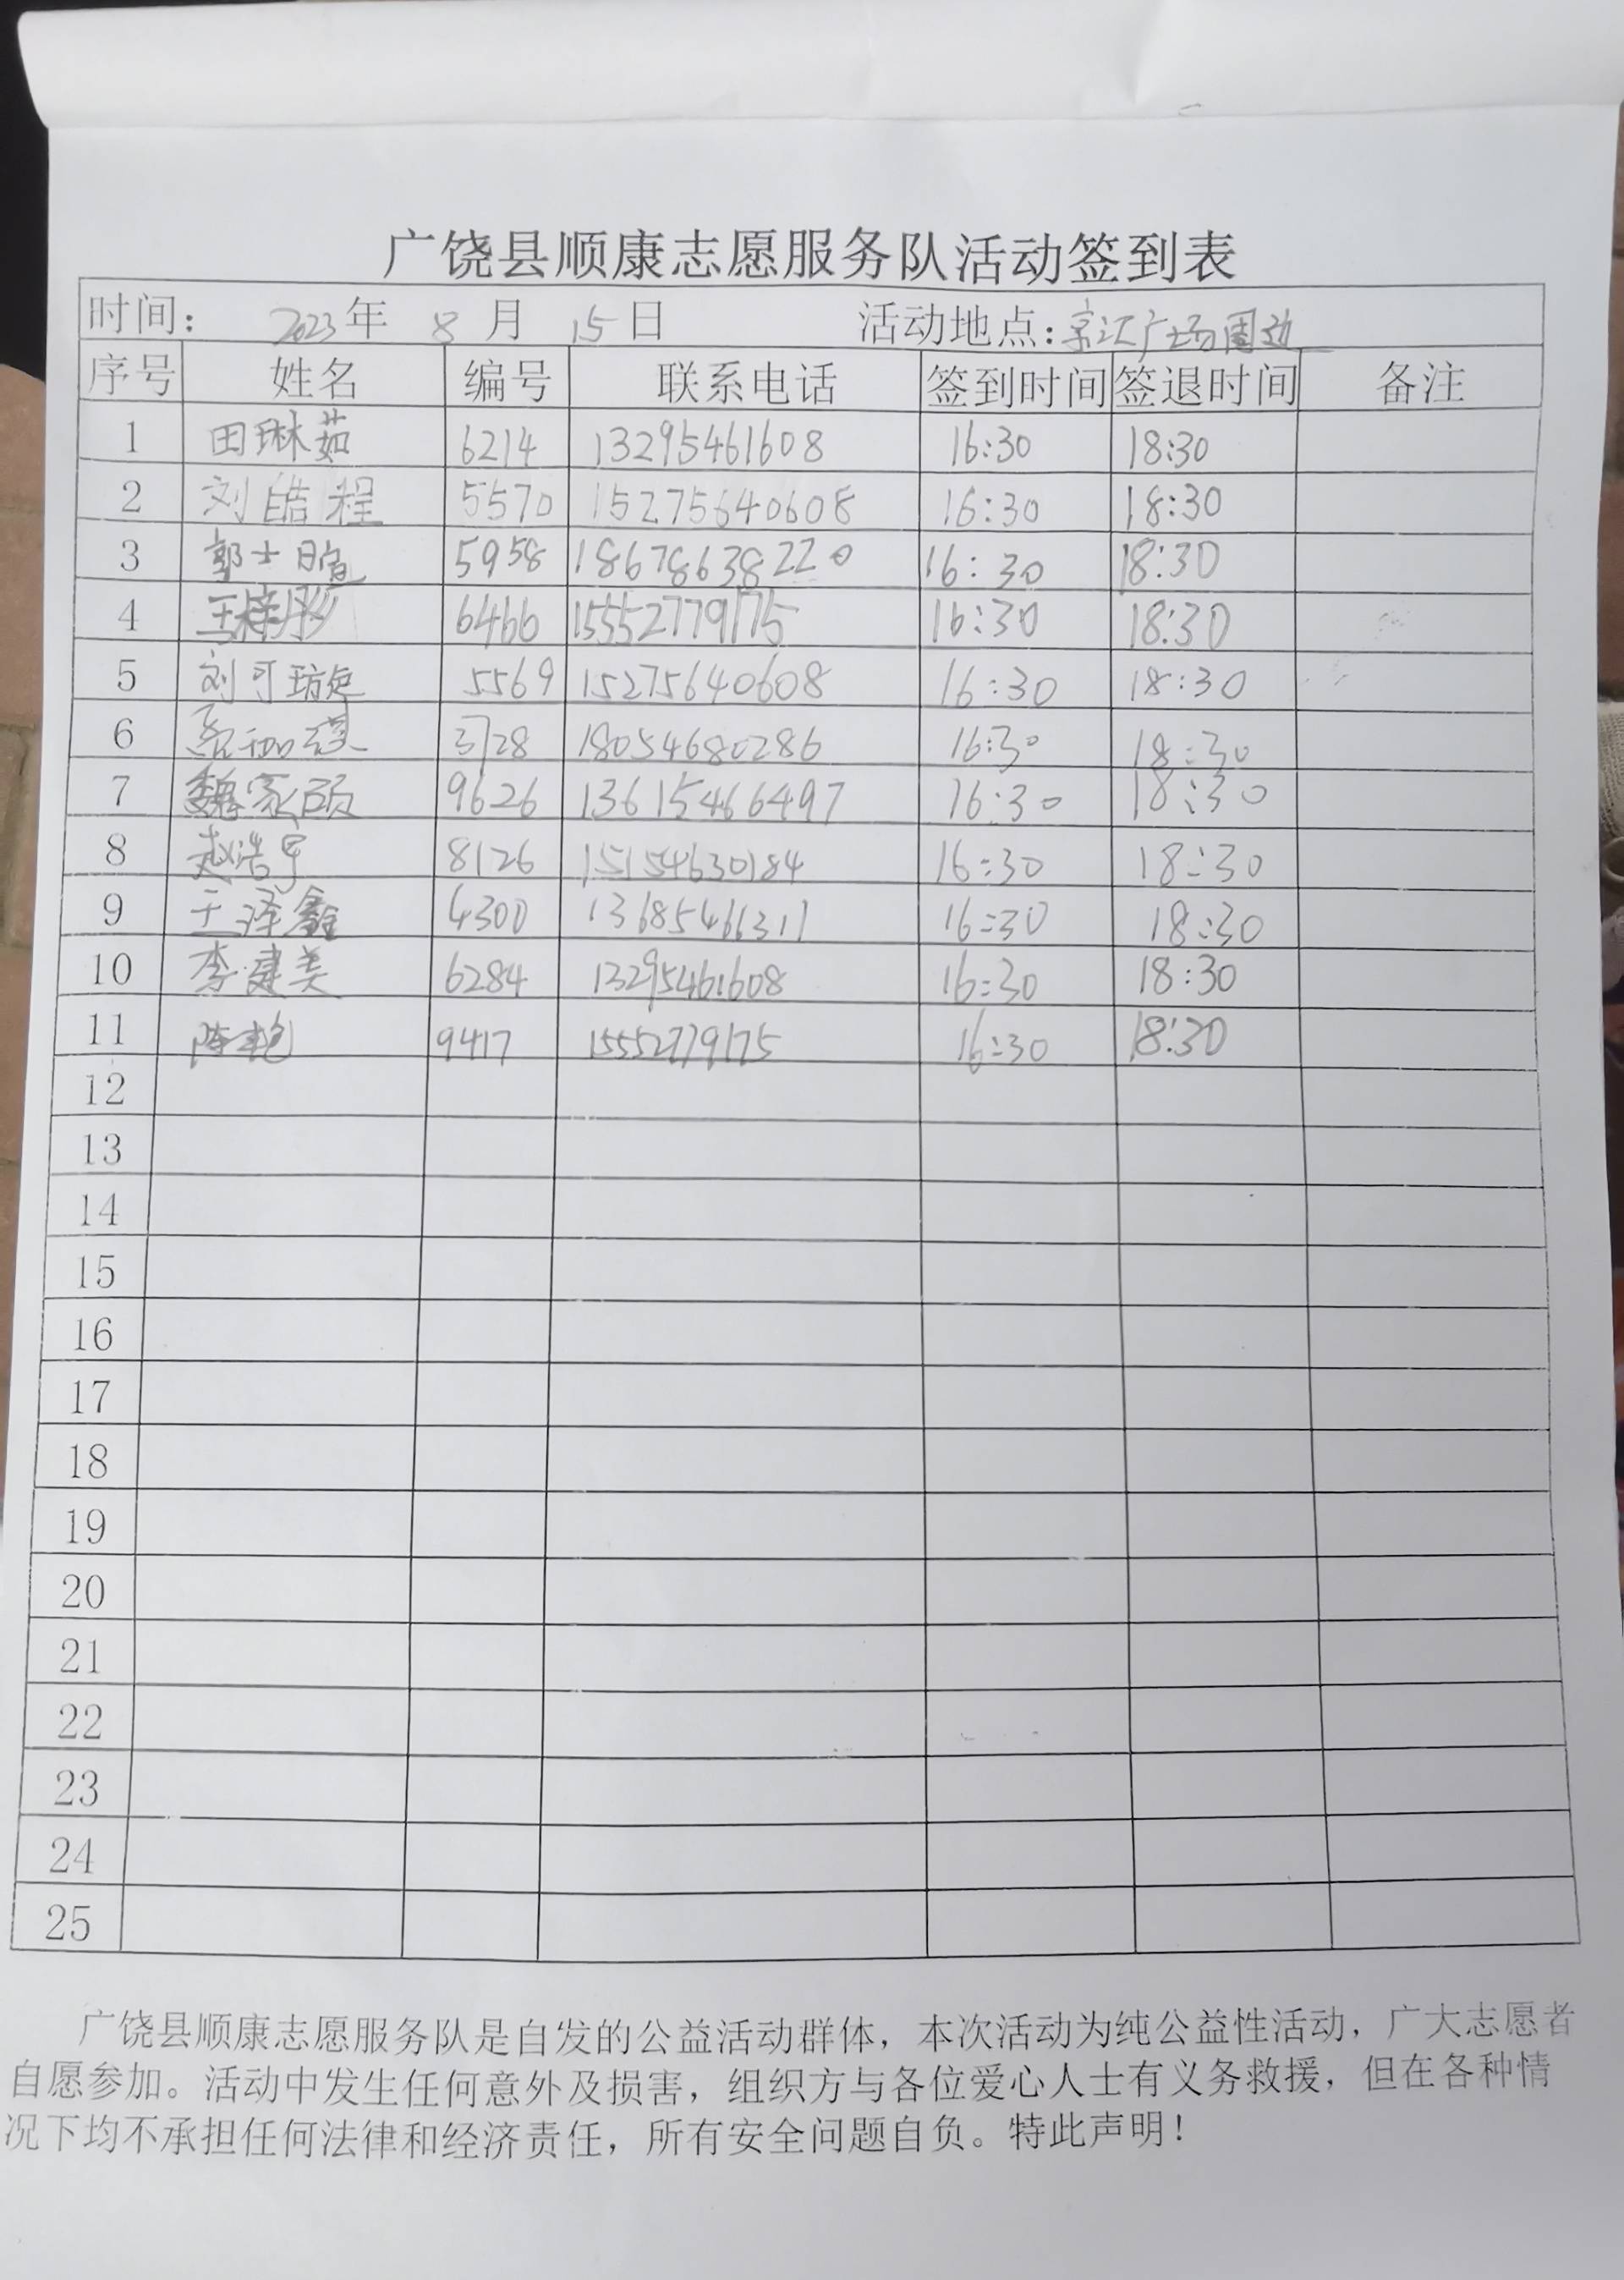 广饶县顺康志愿服务队活动签到表
时间: 2023年 8 月 15 日 活动地点:京汇广场周边
序号 姓名 编号 联系电话 签到时间 签退时间 备注
1 田琳茹 6214 13295461608 16:30 18:30
2 刘皓程 5570 15275640608 16:30 18:30
3 郭士 5958 18678638220 16:30 18:30
4 王梓彤 6466 15552779175 16:30 18:30
5 刘可 5569 15275640608 16:30 18:30
6 3128 18054680286 16:30 18:30
7 魏家硕 9626 13615466497 16:30 18:30
8 赵浩宇 8126 15154630184 16:30 18:30
9 王泽鑫 4300 13685466311 16:30 18:30
10 李建美 6284 13295461608 16:30 18:30
11 陈艳 9417 15552779175 16:30 18:30
12
13
14
15
16
17
18
19
20
21
22
23
24
25
广饶县顺康志愿服务队是自发的公益活动群体，本次活动为纯公益性活动，广大志愿者
自愿参加。活动中发生任何意外及损害，组织方与各位爱心人士有义务救援，但在各种情
况下均不承担任何法律和经济责任，所有安全问题自负。特此声明！